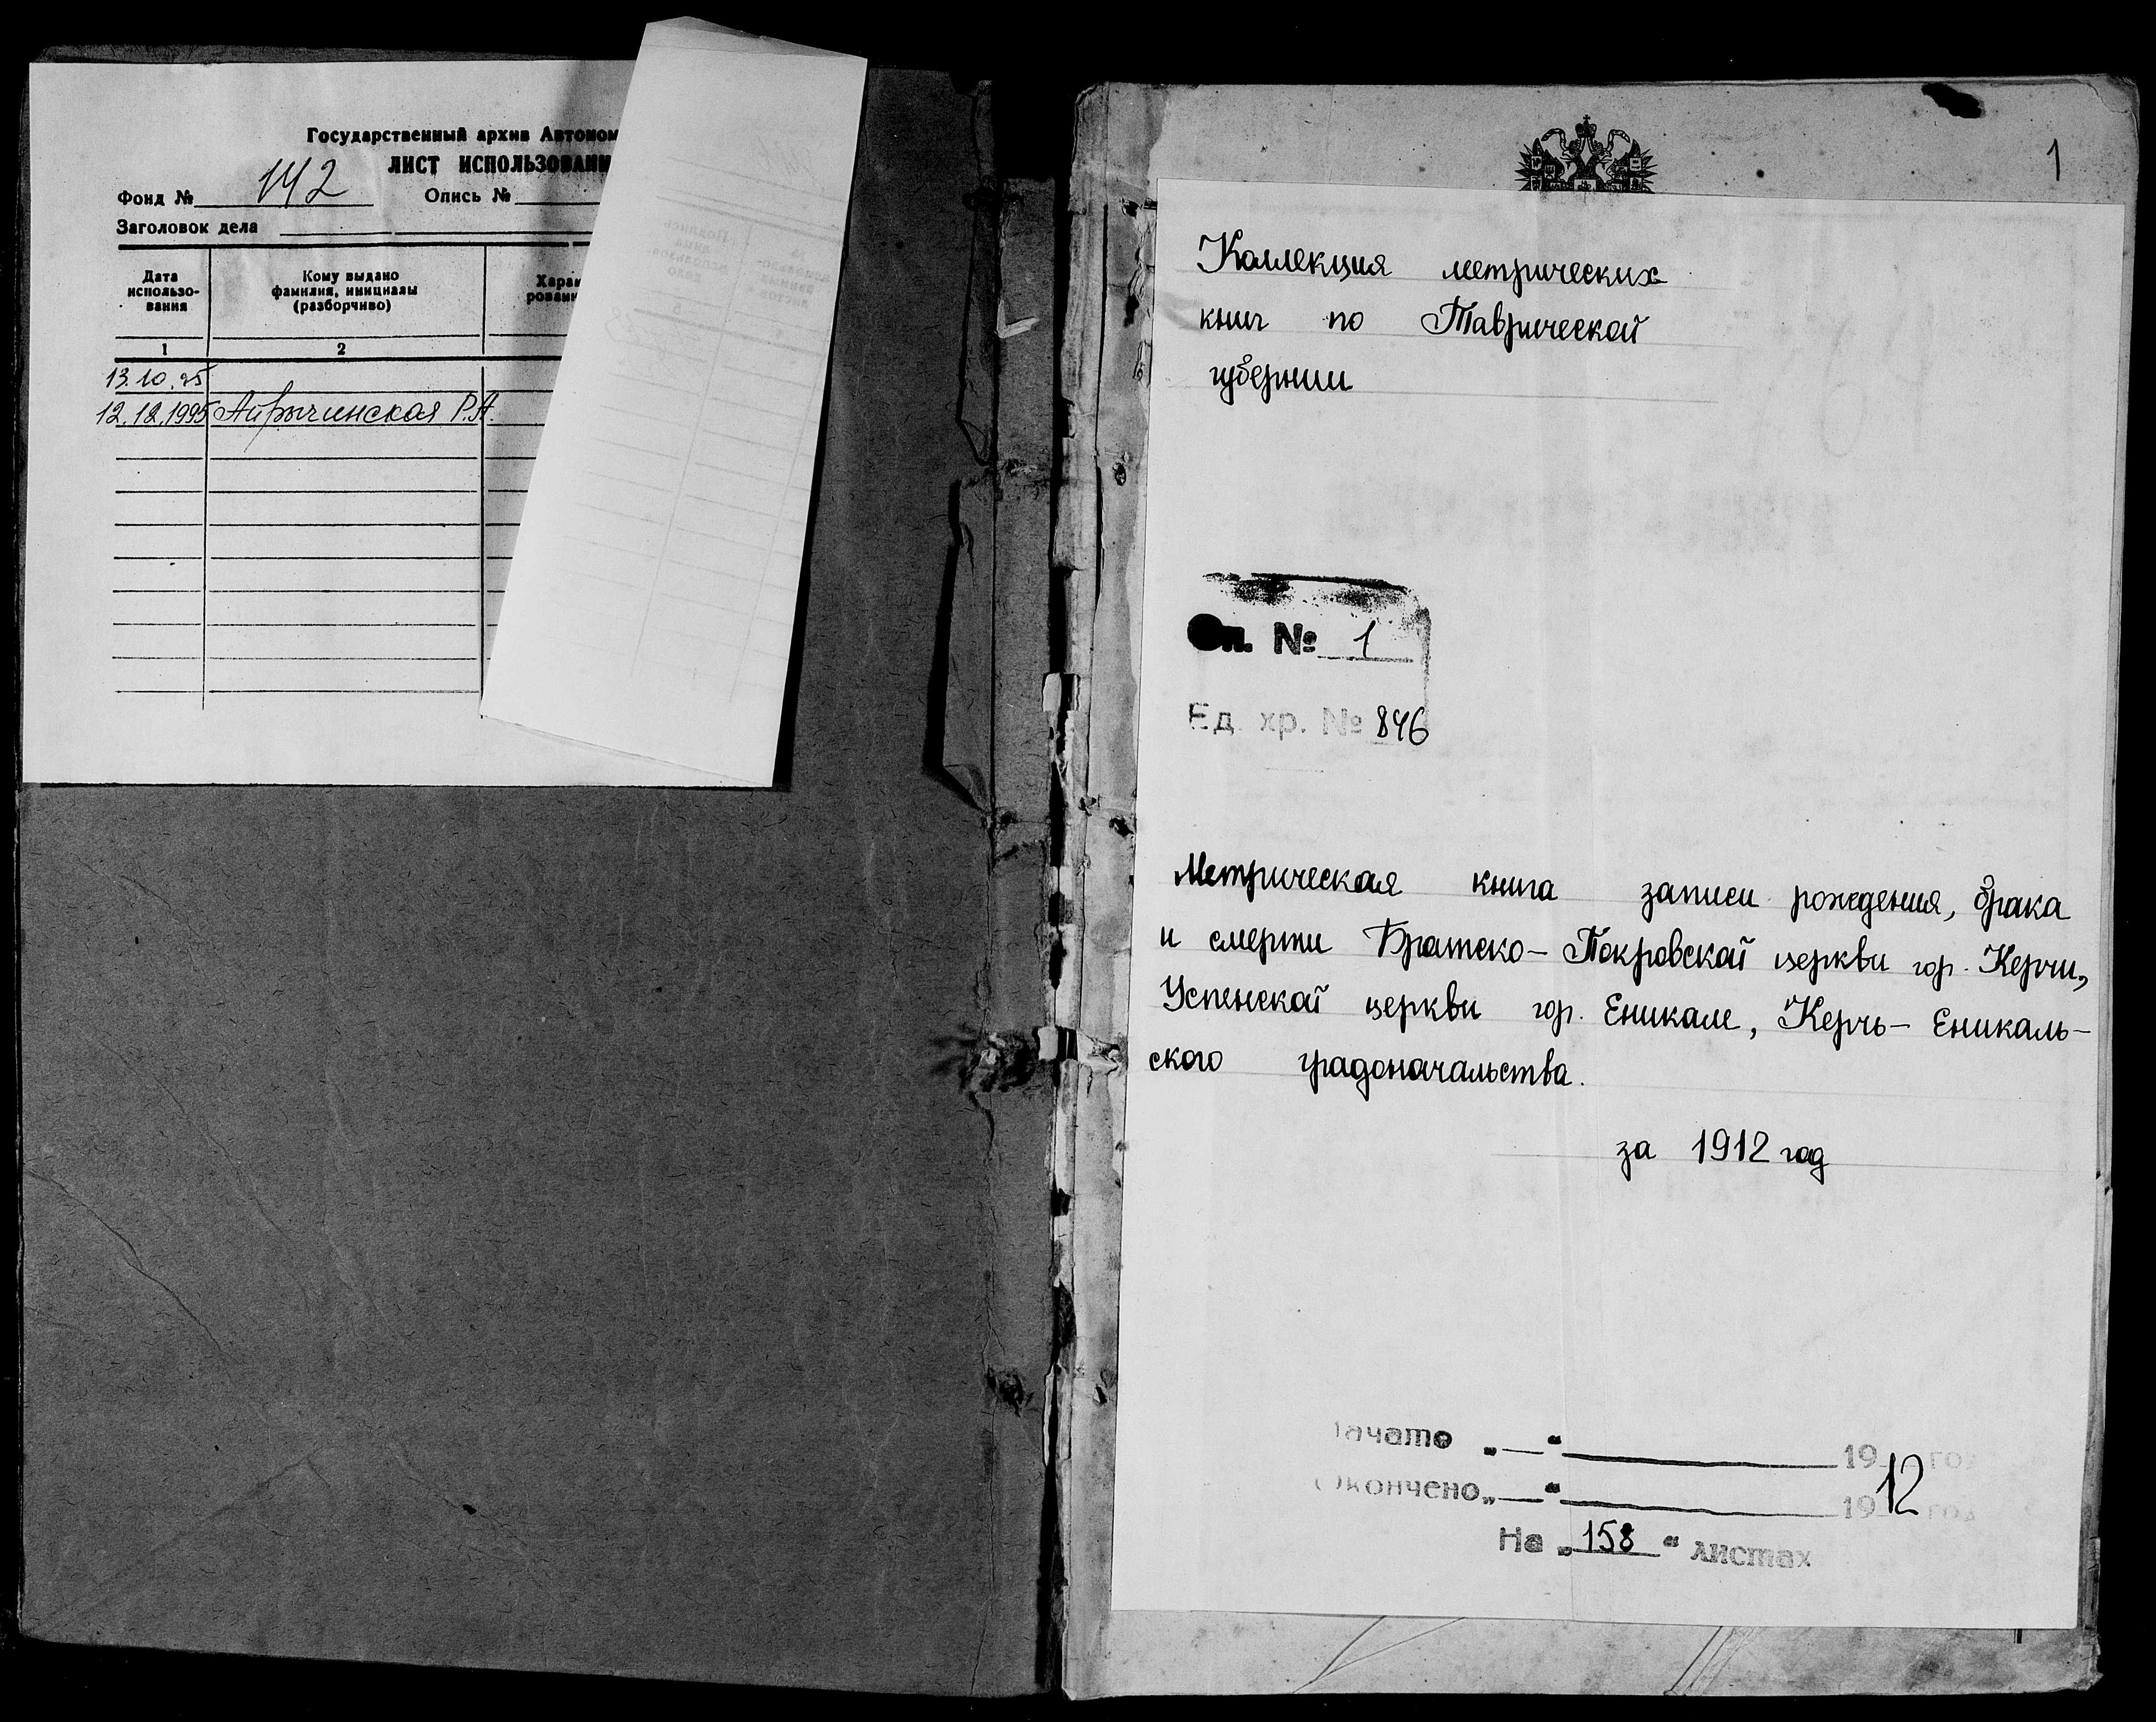 Государственный архив Автоном
ЛИСТ ИСПОЛЬЗОВАНИ
Фонд № 142 Опись №
Заголовок дела
Дата использо-вания
Кому выдано фамилия, инициалы (разборчиво)
Харак
рован
1 2
13.10.95
12.12.1995 Айрычинская Р.А.
1
Коллекция метрических
книг по Таврической
губернии
Оп. № 1
Ед. хр. № 846
Метрическая книга записи рождения, брака
и смерти Братско-Покровской церкви гор. Керчи,
Успенской церкви гор. Еникале, Керчь-Еникаль-
ского градоначальства.
за 1912 год
Начато „—“ 19 год
Окончено „—“ 1912 год
На „158“ листах